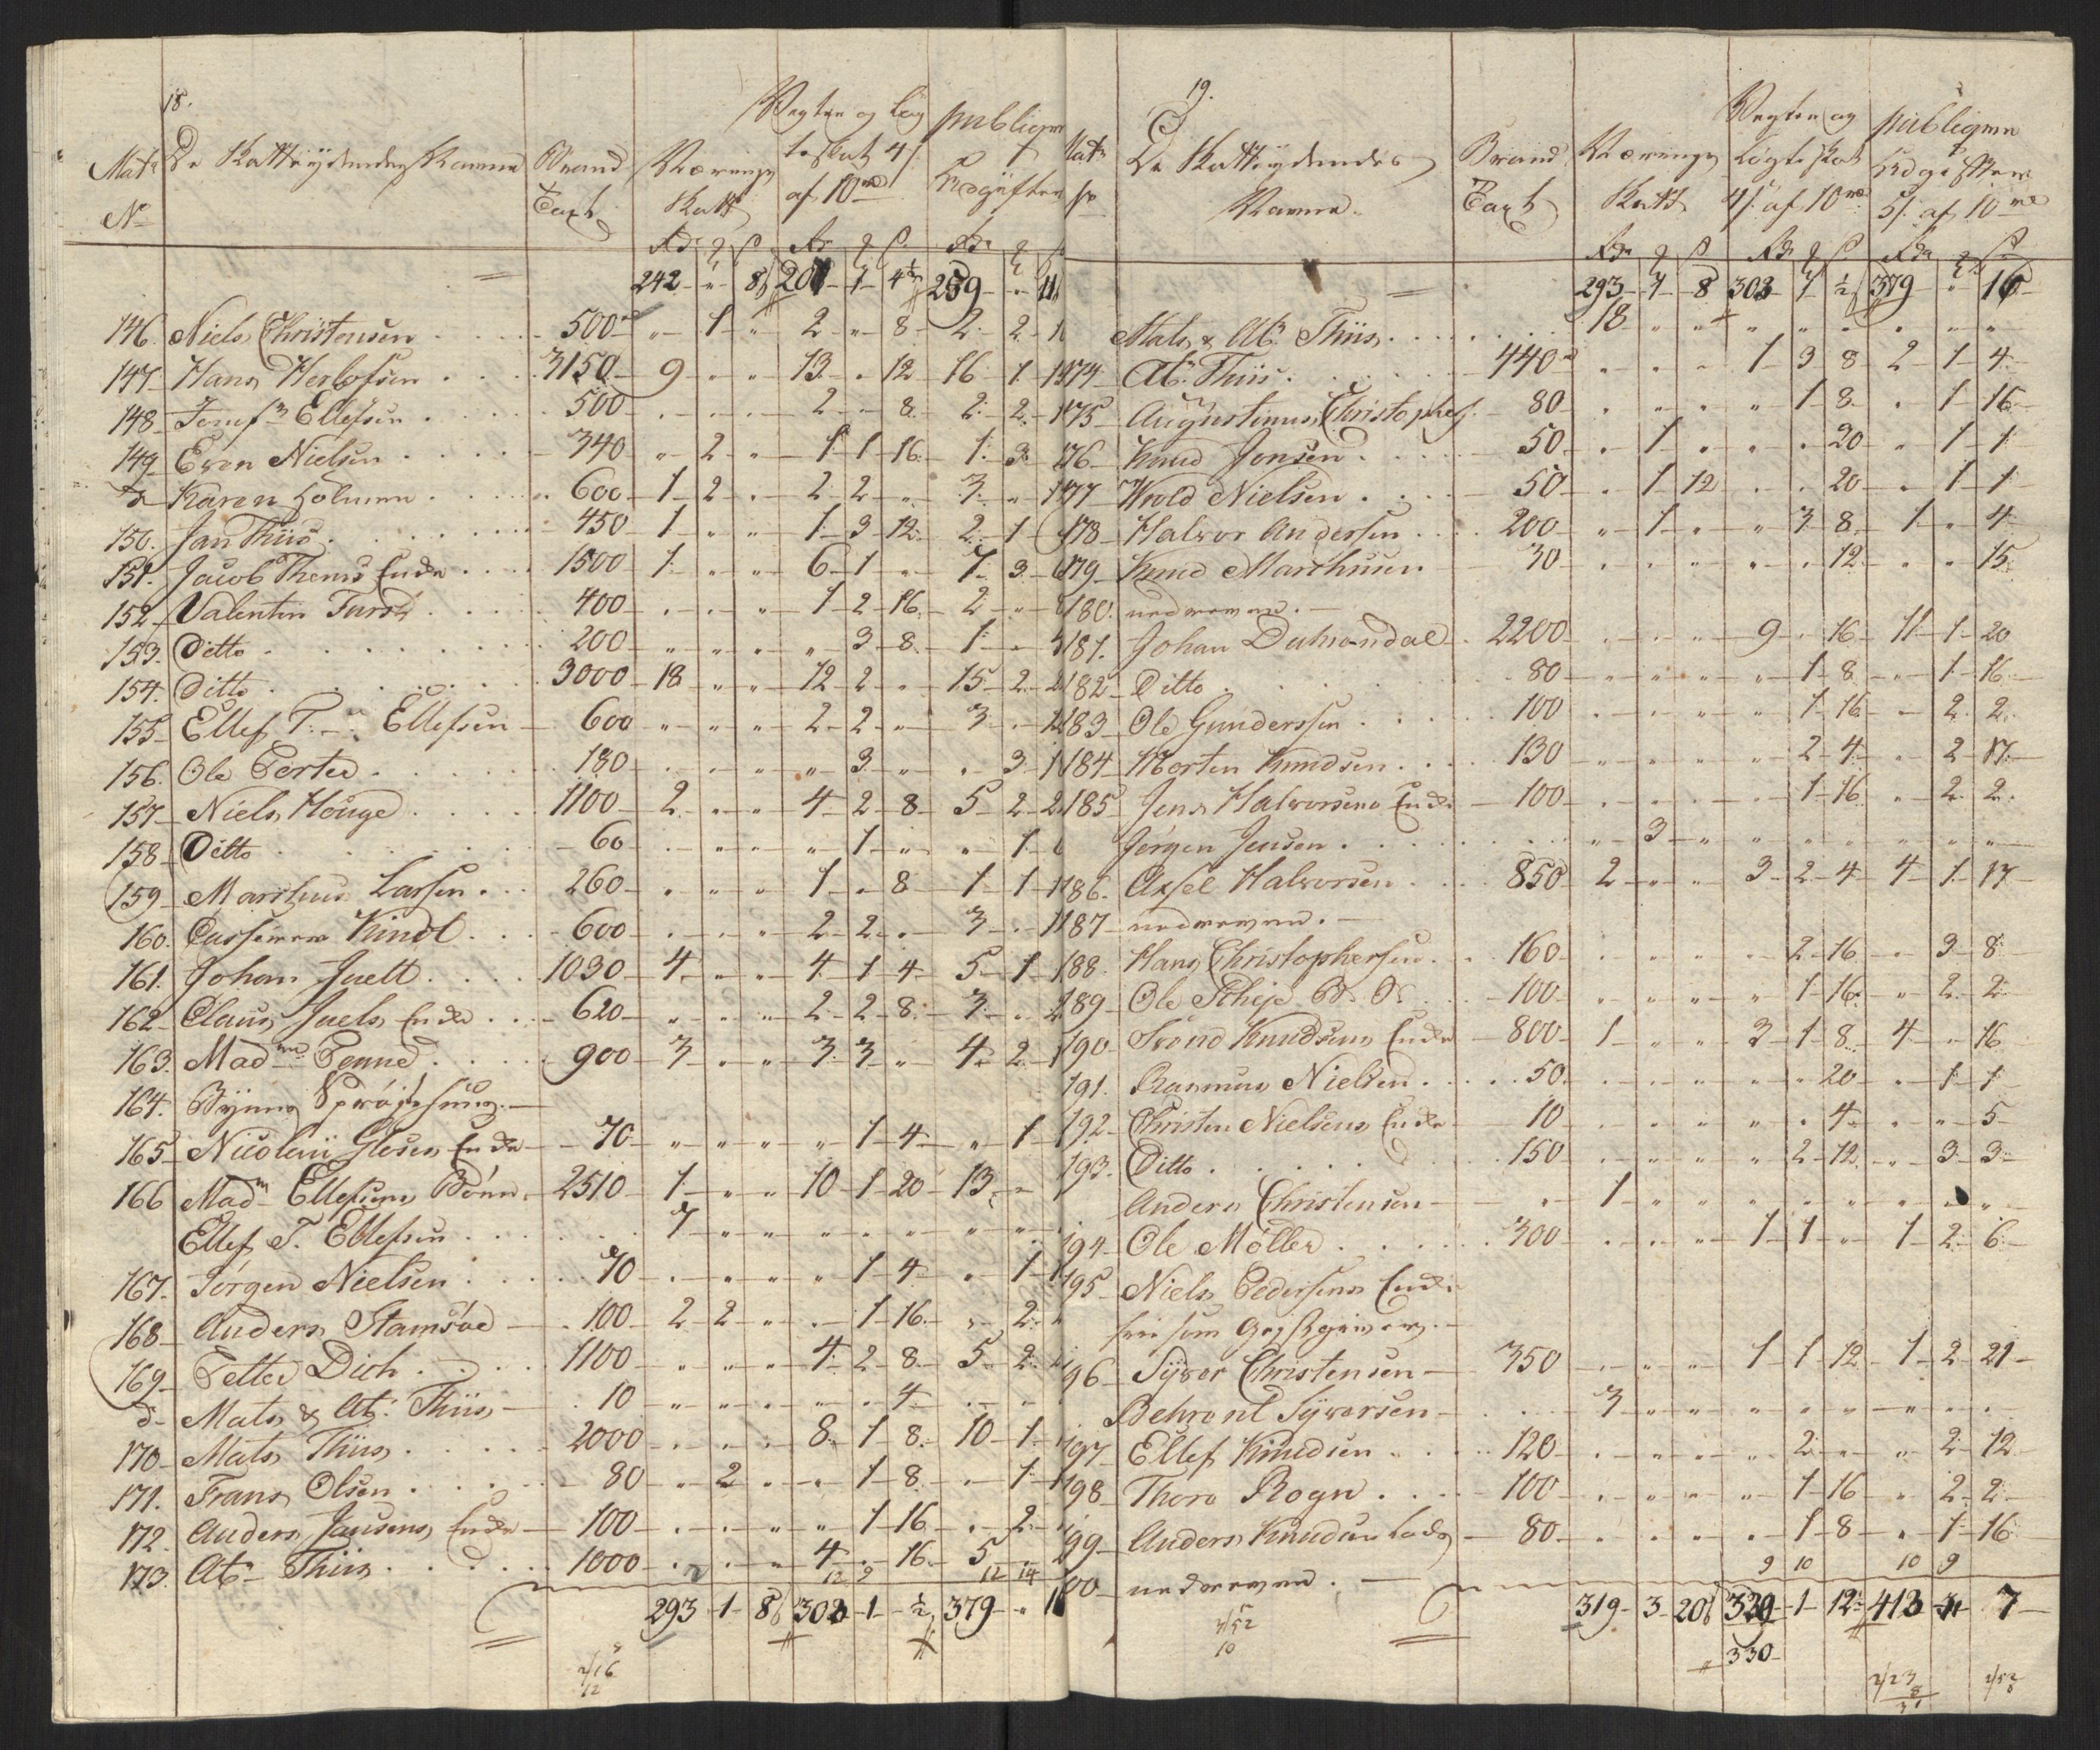 18.
Mats No De Skatteydendes Navne Brand Taxt Nærings Skatt Vegter og Løgteskat 4 s af 10 rd publique Udgifter
Rdr q s Rdr q s Rdr q s
242 - " - 8 201 - 1 - 4½ 259 - " - 11
146. Niels Christensen 500 " 1 " 2 " 8 2 2
147. Hans Herlofsen 3150 9 " " 13 " 12 16 1
148 Ellefsen 500 " " " 2 " 8 2 2
149 Even Nielsen 340 " 2 " 1 1 16 1 3
d Karen Holmen 600 1 2 " 2 2 " 3 "
150. Jan Thiis 450 1 " " 1 3 12 2 1
151. Jacob Thems Enke 1500 1 " " 6 1 " 7 3
152 Valentin Furst 400 " " " 1 2 16 2 "
153. Ditto 200 " " " " 3 8 1 "
154. Ditto 3000 18 " " 12 2 " 15 2
155 Ellef T. Ellefsen 600 " " " 2 2 " 3 "
156. Ole Porter 180 " " " " 3 " " 3
157 Niels Houge 1100 2 " " 4 2 8 5 2
158 Ditto 60 " " " " 1 " " 1
159 Marthius Larsen 260 " " " 1 " 8 1 1
160. Kindt 600 " " " 2 2 " 3 "
161. Johan Juell 1030 4 " " 4 1 4 5 1
162 Claus Juels Enke 620 " " " 2 2 8 3 "
163. Madme Penne 900 3 " " 3 3 " 4 2
164. Byens Sprøjtehuus
165 Nicolaii Glosens Enke 70 " " " " 1 4 " 1
166 Madm Ellefsens Børn 2510 1 " " 10 1 20 13 "
Ellef T. Ellefsen 7 " " " " " " "
167. Jørgen Nielsen 70 " " " " 1 4 " 1
168 Anders Stamsøe 100 2 2 " " 1 16 " 2
169 Petter Dich 1100 " " " 4 2 8 5 2
d Mats & Ab: Thiis 10 " " " " " 4 " "
170 Mats Thiis 2000 " " " 8 1 8 10 1
171. Frans Olsen 80 " 2 " " 1 8 " 1
172. Anders Jansens Enke 100 " " " " 1 16 " 2
173. Ab: Thiis 1000 " " " 4 " 16 5
293 - 1 - 8 302 - 1 - ½ 379 - "
19.
De Skatteydendes Navne Brand Taxt Nærings Skatt Vegter og Løgte Skat 4 s af 10 rd publique Udgifter 5 s af 10 rd
Rdr q s Rdr q s Rdr q s
293 - 1 - 8 302 - 1 - ½ 379 - " - 16
Mats & Ab: Thiis 18 " " " " " " " "
174 Ab: Thiis 440 " " " 1 3 8 2 1 4
175 Augustinus Christophers. 80 " " " " 1 8 " 1 16
176 Knud Jensen 50 " 1 " " " 20 " 1 1
177 Wold Nielsen 50 " 1 12 " " 20 " 1 1
178 Halvor Andersen 200 " 1 " " 3 8 1 " 4
179 Knud Marthisen 30 " " " " " 12 " " 15
180. nedreven.
181. Johan Dalsrondal 2200 " " " 9 " 16 11 1 20
182 Ditto 80 " " " " 1 8 " 1 16
183 Ole Gundersen 100 " " " " 1 16 " 2 2
184 Morten Knudsen 130 " " " " 2 4 " 2 17
185 Jens Halvorsens Enke 100 " " " " 1 16 " 2 2
Jørgen Jensen " 3 " " " " " " "
186. Axsel Halvorsen 850 2 " " 3 2 4 4 1 17
187 nedreven.
188. Hans Christophersen 160 " " " " 2 16 " 3 8
189 Ole 100 " " " " 1 16 " 2 2
190 Svend Knudsens Enke 800 1 " " 3 1 8 4 " 16
191. Rasmus Nielsen 50 " " " " " 20 " 1 1
192 Christen Nielsens Enke 10 " " " " " 4 " " 5
193. Ditto 150 " " " " 2 12 " 3 3
Anders Christensen " 1 " " " " " " "
194 Ole Møller 300 " " " 1 1 " 1 2 6
195 Niels Pedersens Enke
fri som
196 Syver Christensen 350 " " " 1 1 12 1 2 21
Behrent Syversen 3 " " " " " " " "
197 Ellef Knudsen 120 " " " " 2 " " 2 12
198 Thore Rogn 100 " " " " 1 16 " 2 2
199 Anders Knudsen 80 " " " " 1 8 " 1 16
200 nedreven.
319 - 3 - 20 329 - 1 - 12 413 - 3 - 7
330